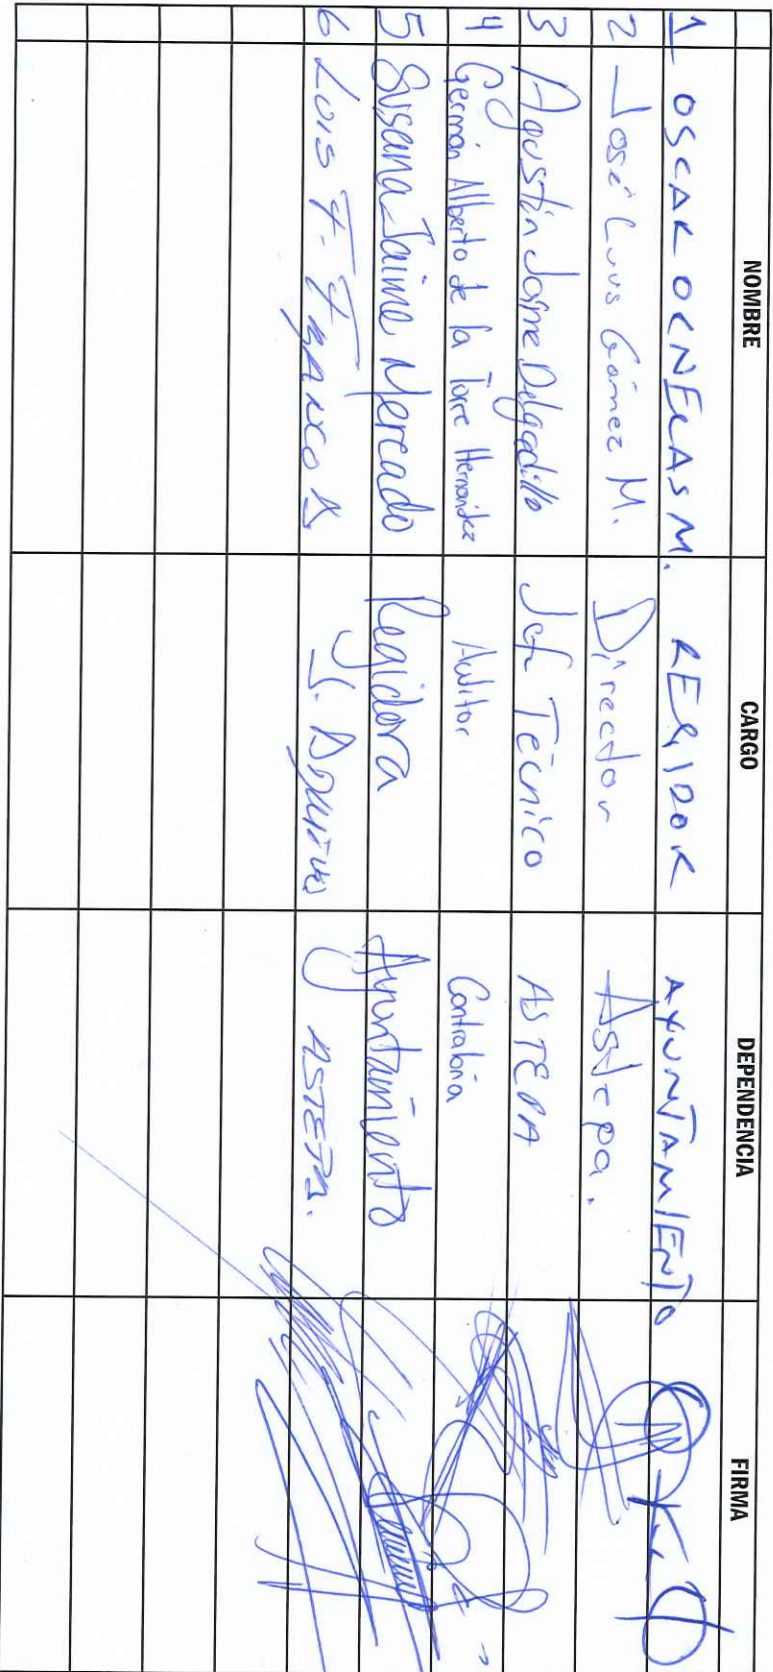 NOMBRE CARGO DEPENDENCIA FIRMA
1 OSCAR ORNELAS M. REGIDOR AYUNTAMIENTO
2 José Luis Gómez M. Director Astepa.
3 Agustín Jaime Delgadillo Jefe Técnico ASTEPA
4 Germán Alberto de la Torre Hernández Auditor Contraloria
5 Susana Jaime Mercado Regidora Ayuntamiento
6 LUIS F. FRANCO A J. ASTEPA.